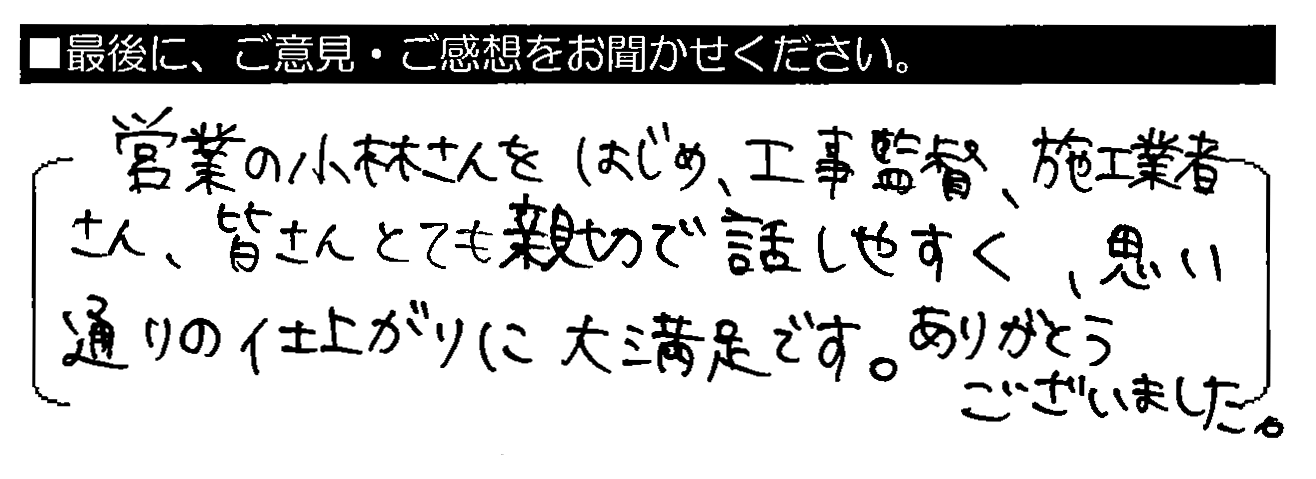 ■最後に、ご意見・ご感想をお聞かせください。
営業の小林さんをはじめ、工事監督、施工業者
さん、皆さんとても親切で話しやすく、思い
通りの仕上がりに大満足です。ありがとう
ございました。